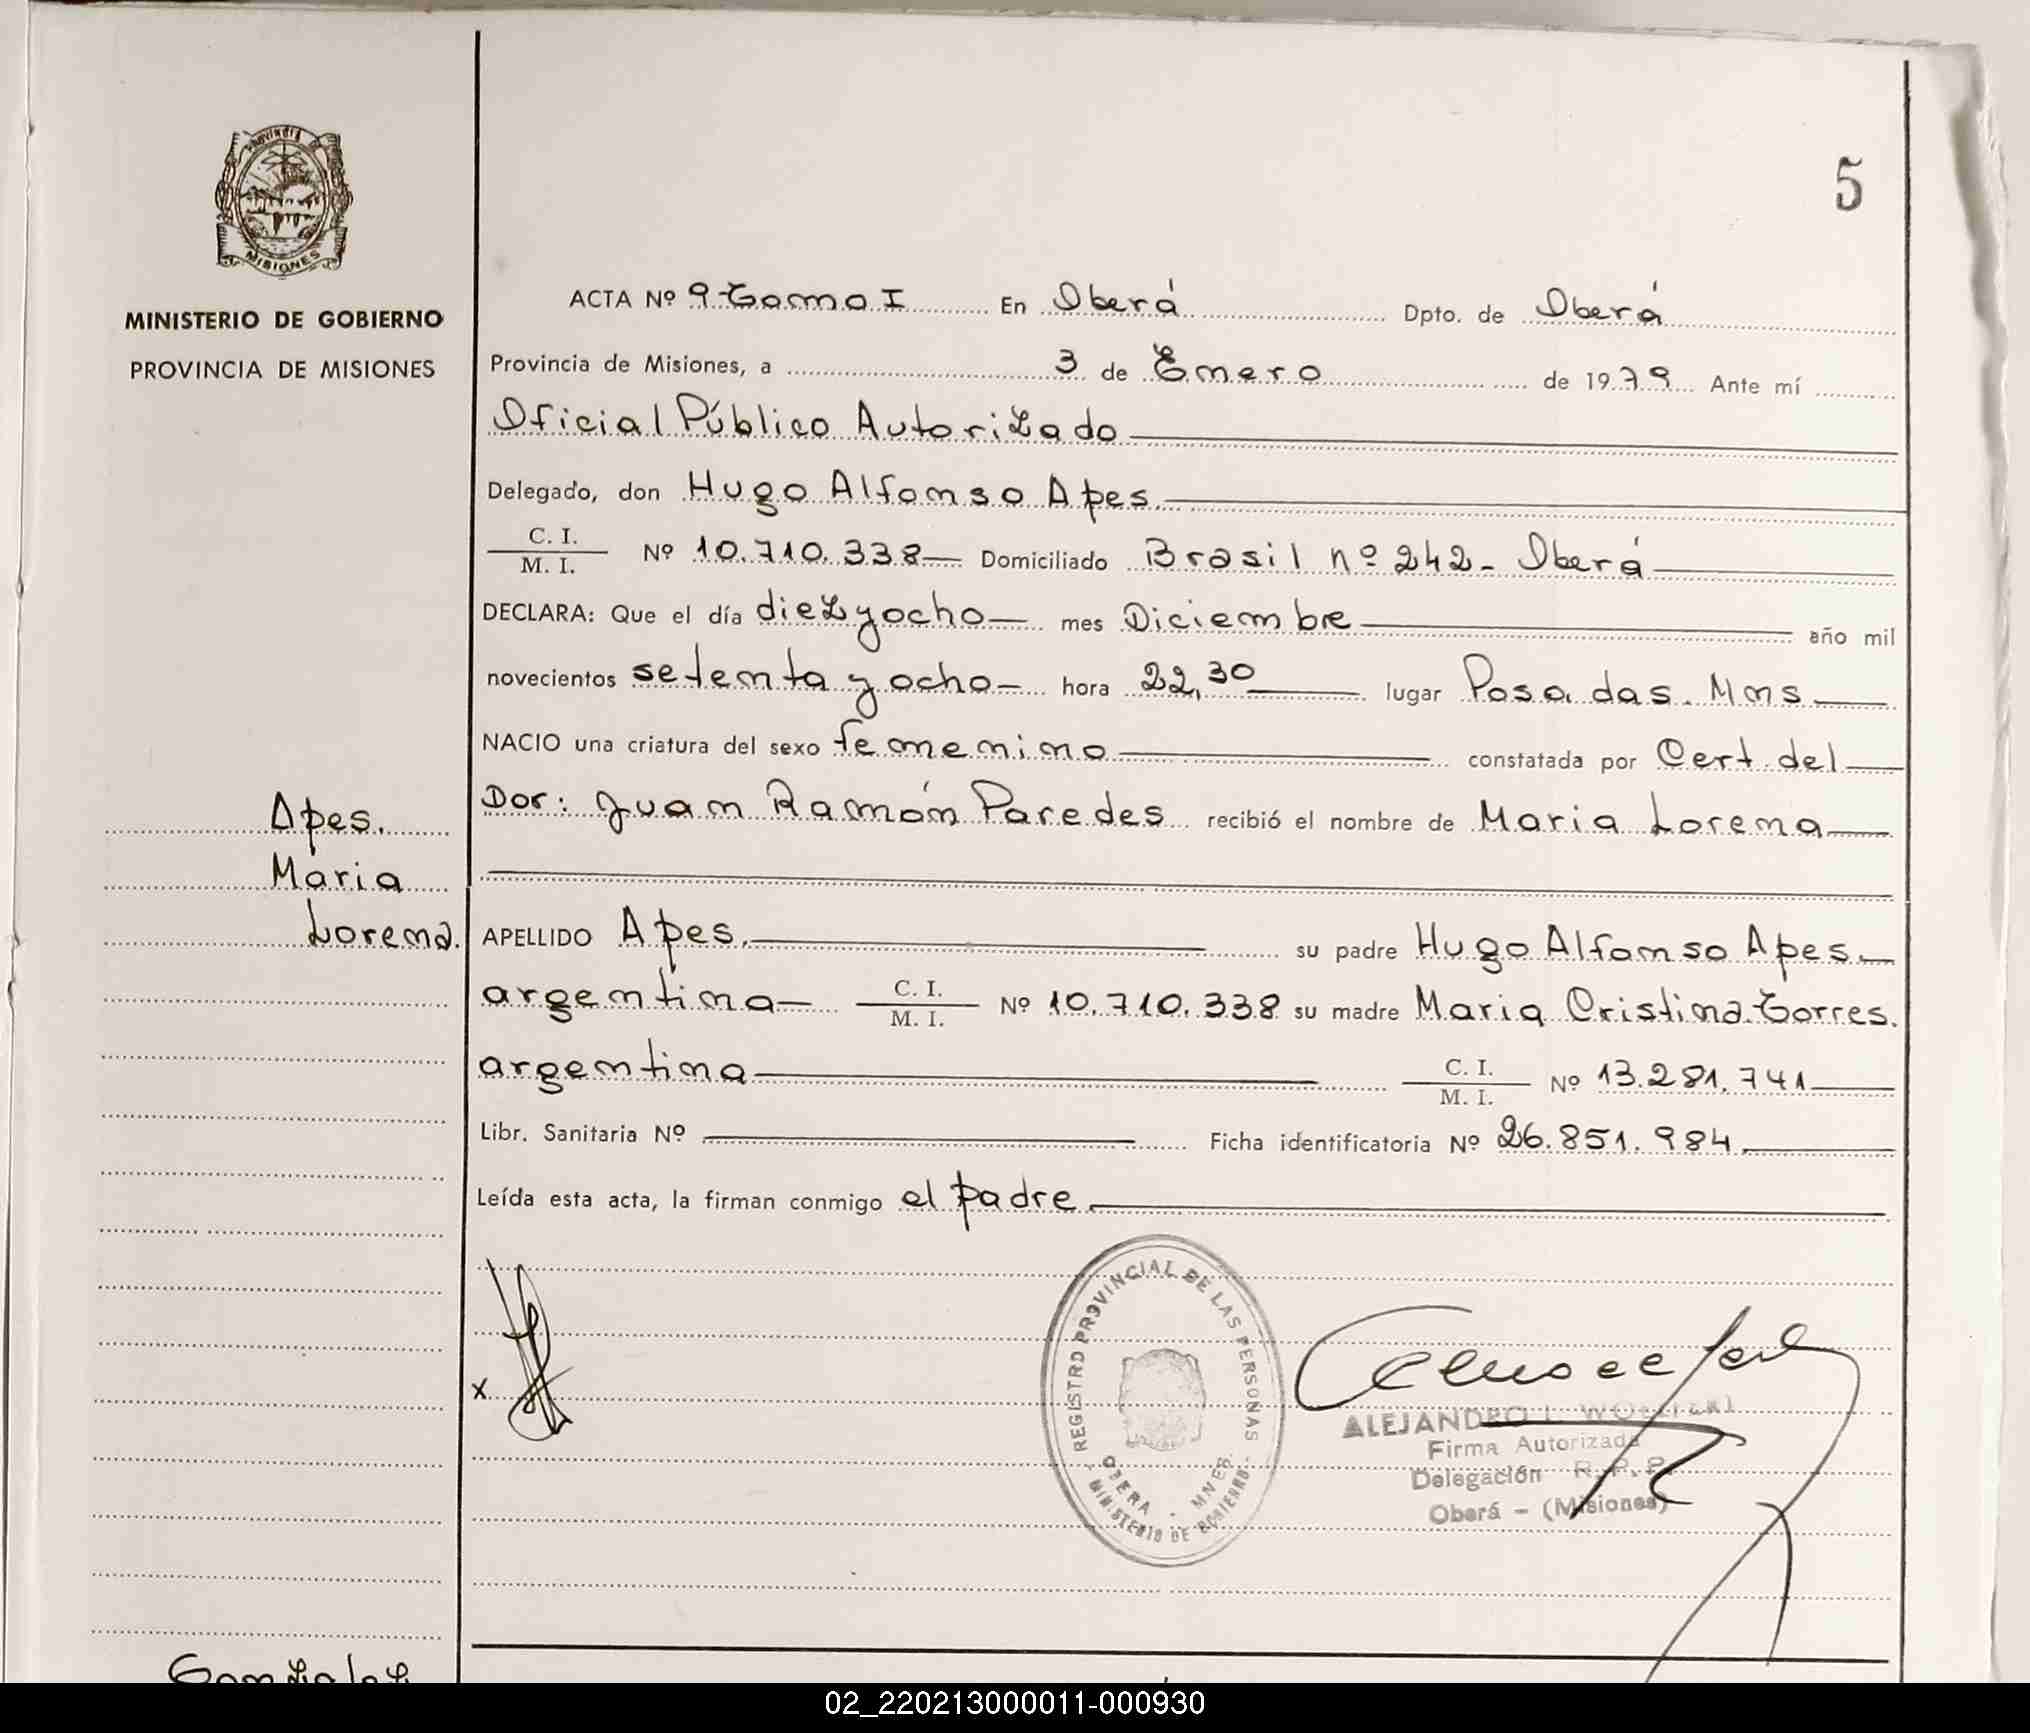 Provincia de
MISIONES
MINISTERIO DE GOBIERNO
PROVINCIA DE MISIONES
5
ACTA Nº 9-Tomo I En Oberá Dpto. de Oberá
Provincia de Misiones, a 3 de Enero de 1979 Ante mí
Oficial Público Autorizado
Delegado, don Hugo Alfonso Apes.
C. I.
M. I. Nº 10.710.338 Domiciliado Brasil nº 242- Oberá
DECLARA: Que el día diezyocho mes Diciembre año mil
novecientos setenta y ocho hora 22,30 lugar Posadas. Mns
NACIO una criatura del sexo femenino constatada por Cert. del
Dor: Juan Ramón Paredes recibió el nombre de Maria Lorena
Apes.
Maria
Lorena.
APELLIDO Apes. su padre Hugo Alfonso Apes.
argentina C. I.
M. I. Nº 10.710.338 su madre Maria Cristina Torres.
argentina C. I.
M. I. Nº 13.281.741
Libr. Sanitaria Nº Ficha identificatoria Nº 26.851.984
Leída esta acta, la firman conmigo el padre
x
REGISTRO PROVINCIAL DE LAS PERSONAS
OBERA - MNES.
- MINISTERIO DE GOBIERNO -
ALEJANDRO L.
Firma Autorizada
Delegación R. P. P.
Oberá - (Misiones)
02_220213000011-000930